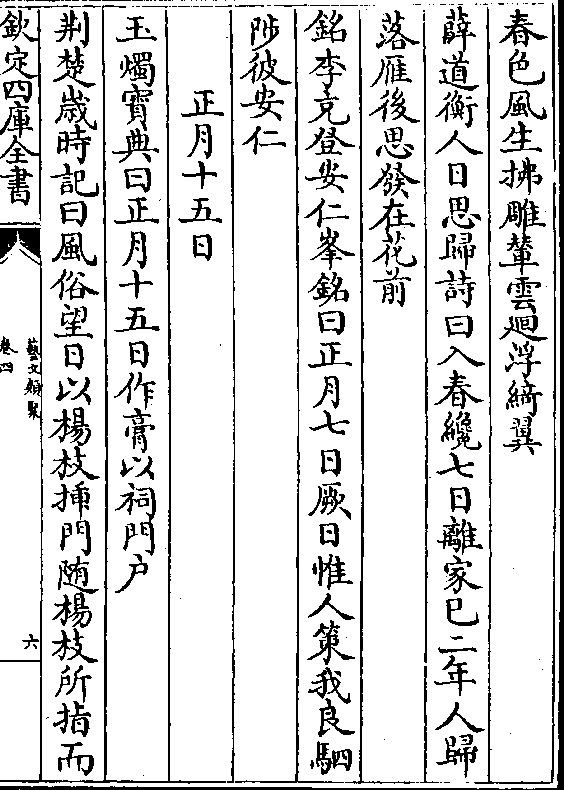 春色風生拂雕輦雲廻浮綺翼
薛道衡人日思歸詩曰入春纔七日離家已二年人歸
落雁後思發在花前
銘李充登安仁峯銘曰正月七日厥日惟人策我良駟
陟彼安仁
正月十五日
玉燭寶典曰正月十五日作膏以祠門户
荆楚嵗時記曰風俗望日以楊枝揷門随楊枝所指而
欽定四庫全書
藝文類聚
卷四
六